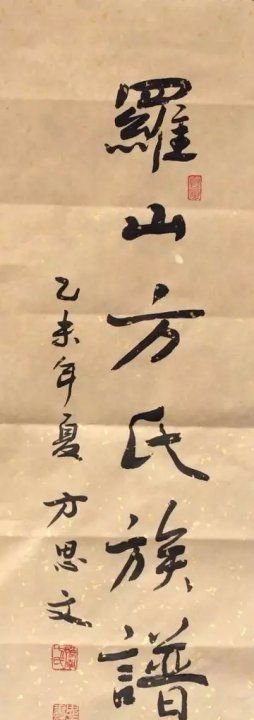 羅山方氏族譜
乙未年夏 方思文